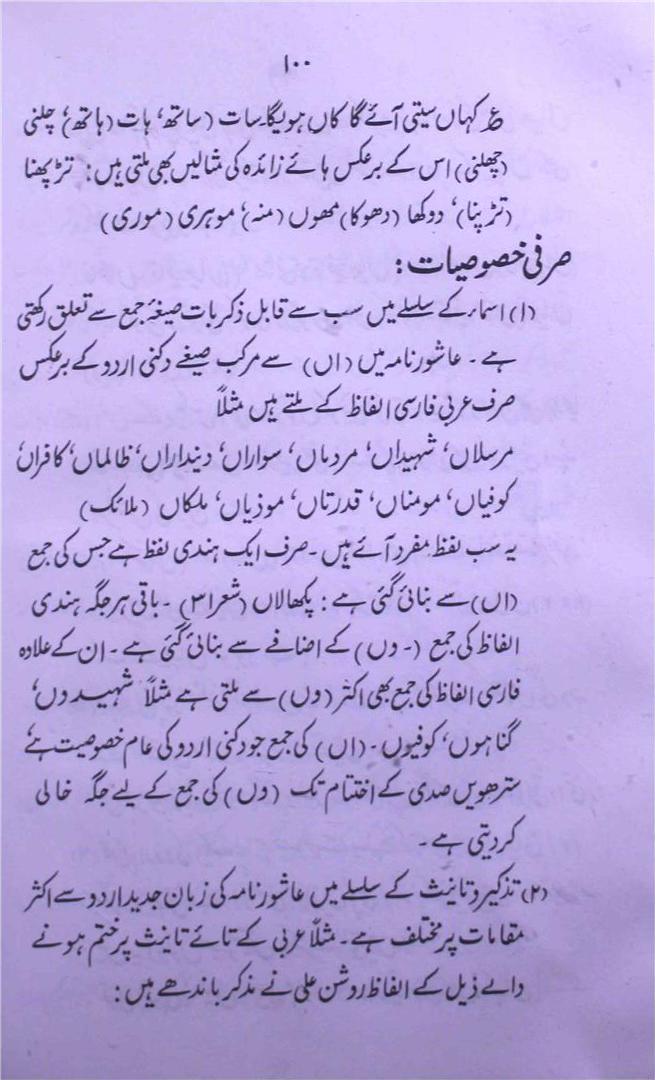 ۱۰۰
ع کہاں سیتی آئے گا کاں ہوئیگا۔ سات (ساتھ‘ ہات (ہاتھ) چلنی
(چھلنی) اس کے برعکس ہائے زائدہ کی مثالیں بھی ملتی ہیں: تڑپھنا
(تڑپنا)‘ دوکھا (دھوکا) مھوں (منہ)‘ موہری (موری)
صرفی خصوصیات:
(۱) اسماء کے سلسلے میں سب سے قابل ذکر بات صیغۂ جمع سے تعلق رکھتی
ہے۔ عاشورنامہ میں (اں) سے مرکب صیغے دکنی اردو کے برعکس
صرف عربی فارسی الفاظ کے ملتے ہیں مثلاً
مرسلاں‘ شہیداں‘ مردماں‘ سواراں‘ دینداراں‘ ظالماں‘ کافراں‘
کوفیاں‘ مومناں‘ قدرتاں‘ موذیاں‘ ملکاں (ملائک)
یہ سب لفظ مفرد آئے ہیں۔ صرف ایک ہندی لفظ ہے جس کی جمع
(اں) سے بنائی گئی ہے: پکھالاں (شعر ۳۱)۔ باقی ہر جگہ ہندی
الفاظ کی جمع (-وں) کے اضافے سے بنائی گئی ہے۔ ان کے علاوہ
فارسی الفاظ کی جمع بھی اکثر (وں) سے ملتی ہے مثلاً شہیدوں‘
گناہوں‘ کوفیوں۔ (اں) کی جمع جو دکنی اردو کی عام خصوصیت ہے‘
سترھویں صدی کے اختتام تک (وں) کی جمع کے لیے جگہ خالی
کر دیتی ہے۔
(۲) تذکیر و تانیث کے سلسلے میں عاشورنامہ کی زبان جدید اردو سے اکثر
مقامات پر مختلف ہے۔ مثلاً عربی کے تائے تانیث پر ختم ہونے
والے ذیل کے الفاظ روشن علی نے مذکر باندھے ہیں: